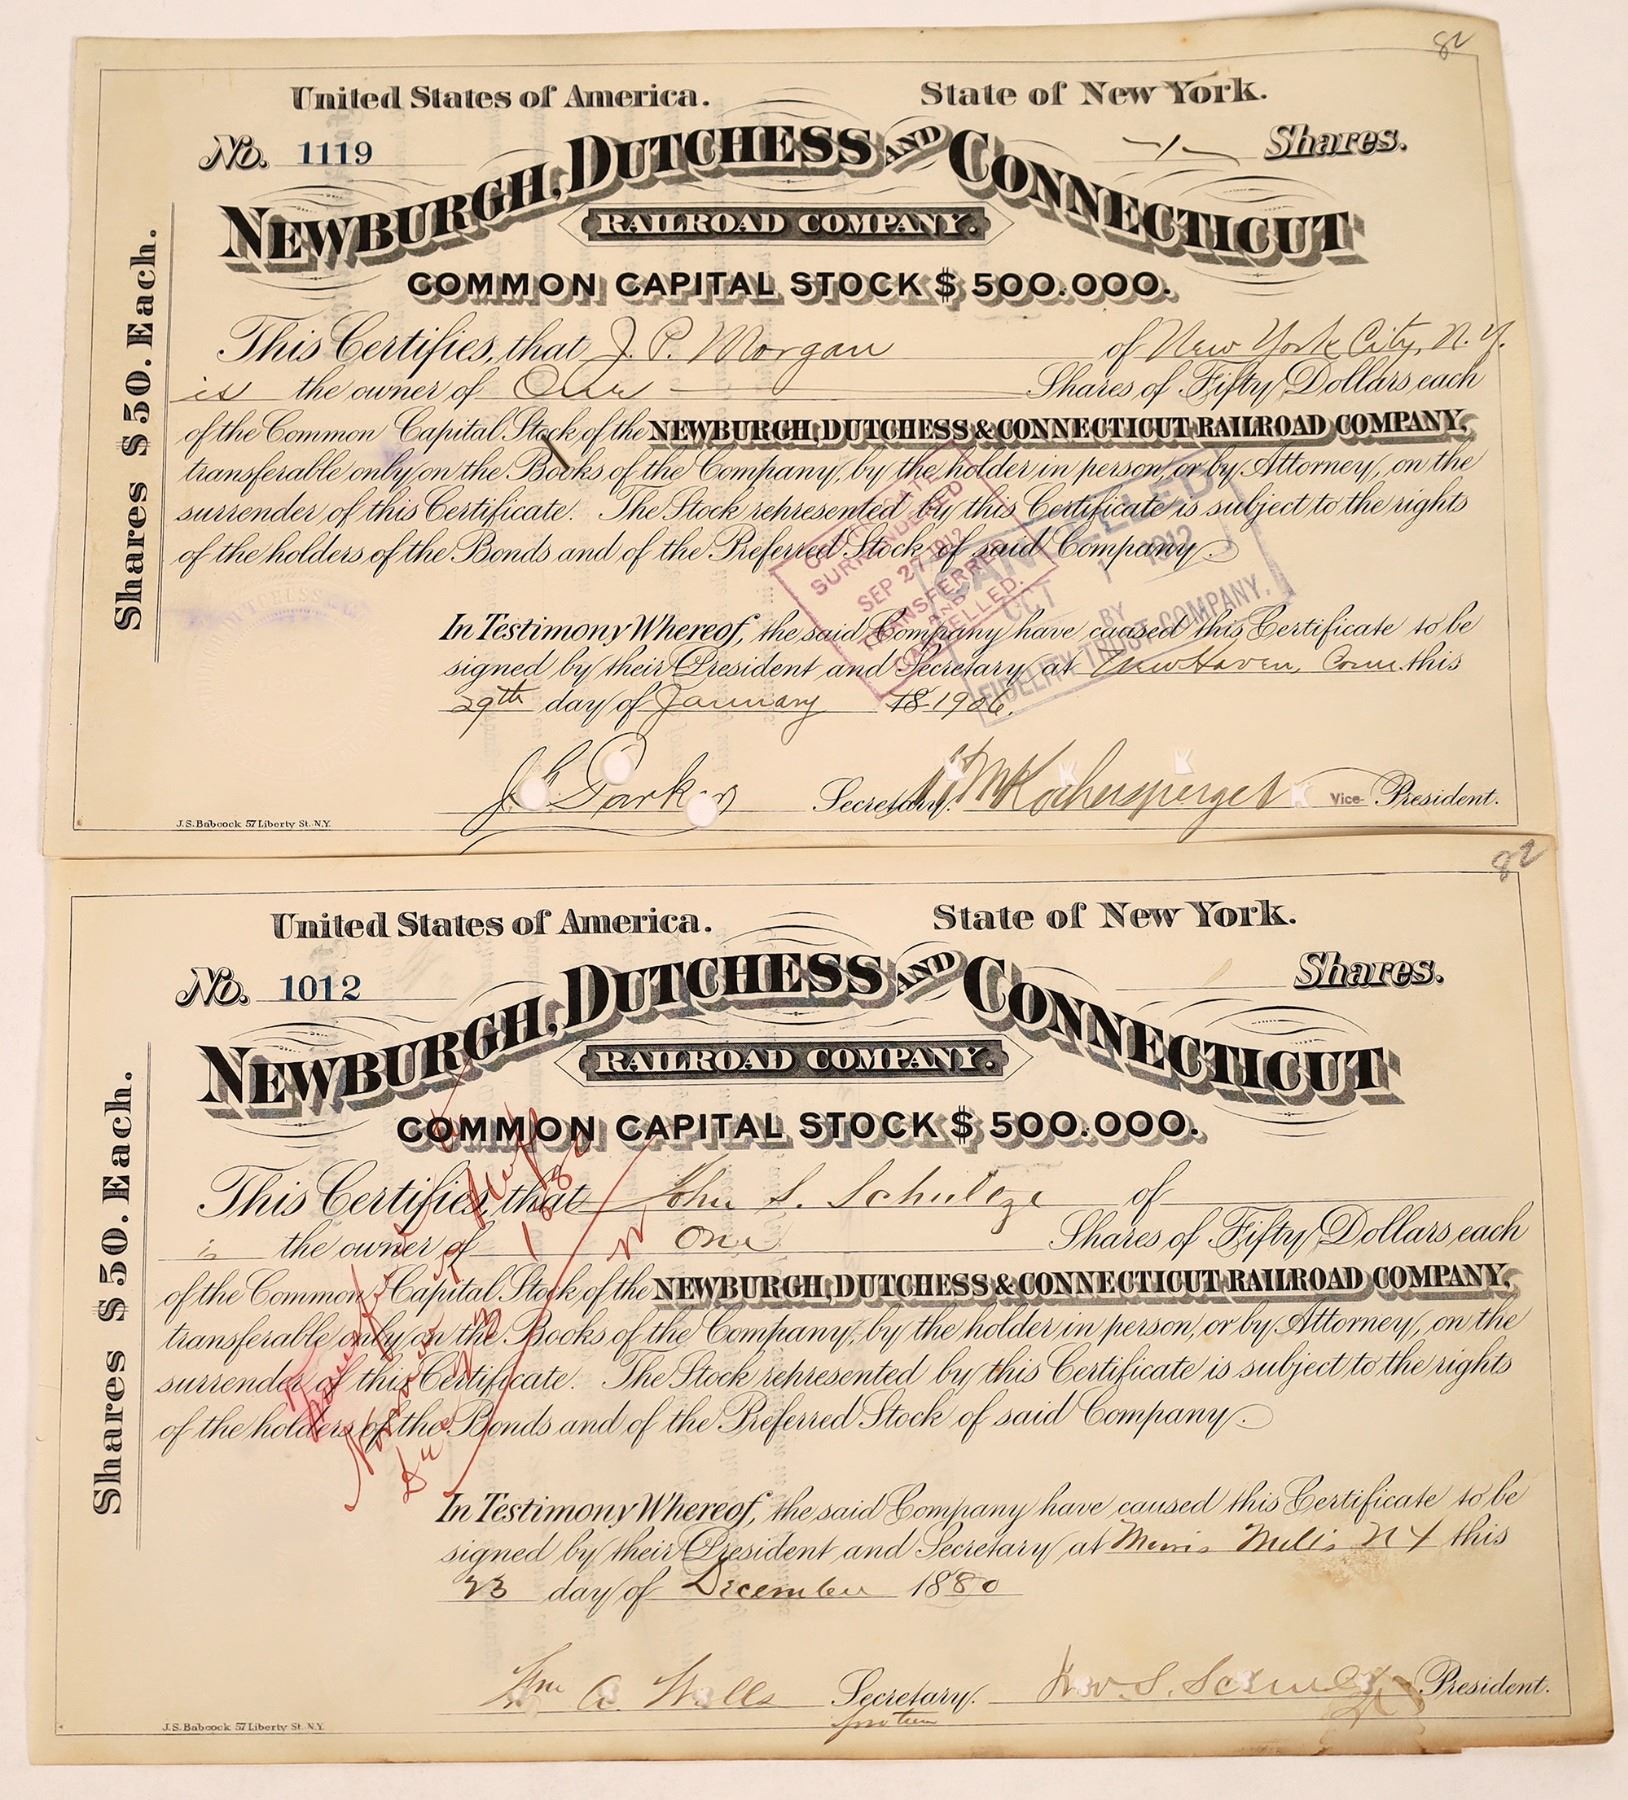 82
United States of America. State of New York.
No. 1119 -1- Shares.
NEWBURGH, DUTCHESS AND CONNECTICUT
RAILROAD COMPANY.
COMMON CAPITAL STOCK $500.000.
Shares $50. Each.
This Certifies, that J. P. Morgan of New York City, N.Y.
is the owner of One Shares of Fifty Dollars each
of the Common Capital Stock of the NEWBURGH, DUTCHESS & CONNECTICUT RAILROAD COMPANY,
transferable only on the Books of the Company, by the holder in person, or by Attorney, on the
surrender of this Certificate. The Stock represented by this Certificate is subject to the rights
of the holders of the Bonds and of the Preferred Stock of said Company.
CERTIFICATE
SURRENDERED
SEP 27 1912
TRANSFERRED
AND
CANCELLED.
CANCELLED
OCT 1 1912
BY
FIDELITY TRUST COMPANY.
In Testimony Whereof, the said Company have caused this Certificate to be
signed by their President and Secretary at New Haven, Conn. this
29th day of January 18 1906.
J. G. Parker Secretary. Kochersperger Vice- President.
J.S. Babcock 57 Liberty St. N.Y.
82
United States of America. State of New York.
No. 1012 Shares.
NEWBURGH, DUTCHESS AND CONNECTICUT
RAILROAD COMPANY.
COMMON CAPITAL STOCK $500.000.
Shares $50. Each.
This Certifies, that John S. Schultze of
is the owner of One Shares of Fifty Dollars each
of the Common Capital Stock of the NEWBURGH, DUTCHESS & CONNECTICUT RAILROAD COMPANY,
transferable only on the Books of the Company, by the holder in person, or by Attorney, on the
surrender of this Certificate. The Stock represented by this Certificate is subject to the rights
of the holders of the Bonds and of the Preferred Stock of said Company.
In Testimony Whereof, the said Company have caused this Certificate to be
signed by their President and Secretary at NY this
23 day of December 1880
Wm A. Wells Secretary. President.
J.S. Babcock 57 Liberty St. N.Y.